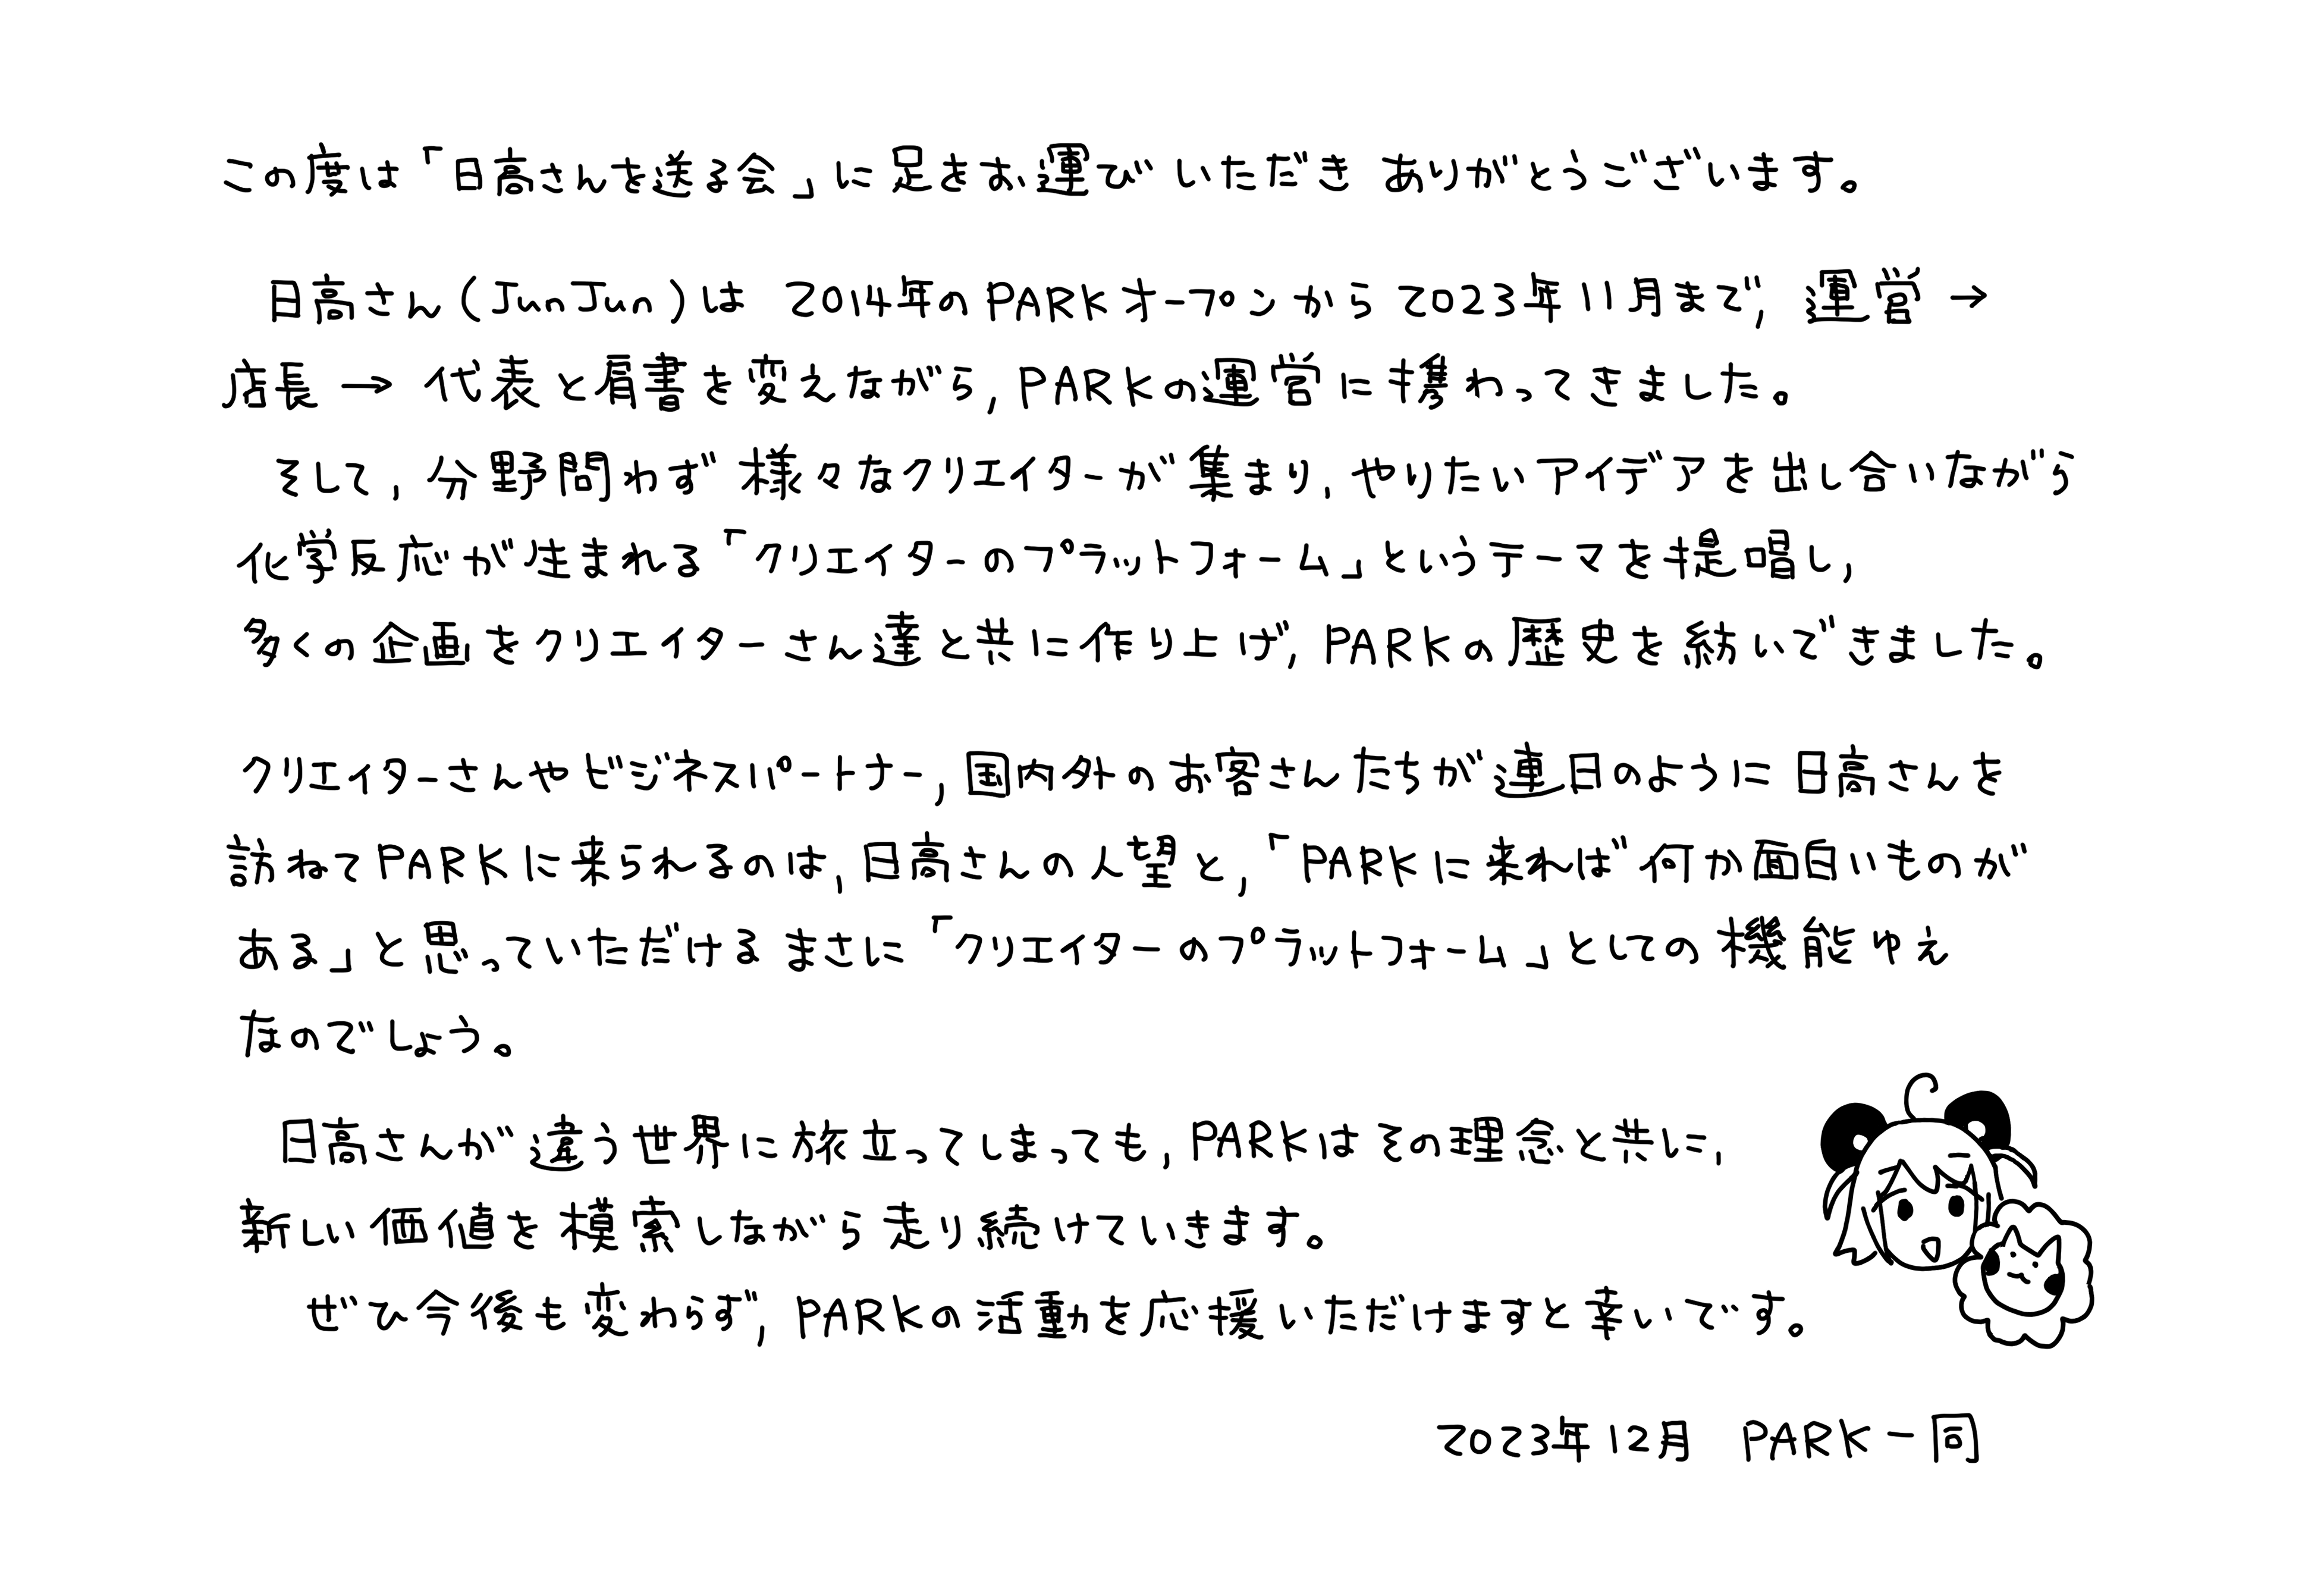 この度は「日高さんを送る会」に足をお運びいただき ありがとうございます。
日高さん(JunJun)は 2014年のPARKオープンから 2023年11月まで, 運営→
店長→代表と肩書を変えながら, PARKの運営に携わってきました。
そして, 分野問わず 様々なクリエイターが集まり, やりたいアイデアを出し合いながら
化学反応が生まれる「クリエイターのプラットフォーム」というテーマを提唱し,
多くの企画をクリエイターさん達と共に作り上げ, PARKの歴史を紡いできました。
クリエイターさんやビジネスパートナー, 国内外のお客さんたちが連日のように日高さんを
訪ねてPARKに来られるのは, 日高さんの人望と, 「PARKに来れば何か面白いものが
ある」と思っていただける まさに「クリエイターのプラットフォーム」としての機能ゆえ
なのでしょう。
日高さんが違う世界に旅立ってしまっても, PARKはその理念と共に,
新しい価値を模索しながら走り続けていきます。
ぜひ今後も変わらず, PARKの活動を応援いただけますと幸いです。
2023年12月 PARK一同